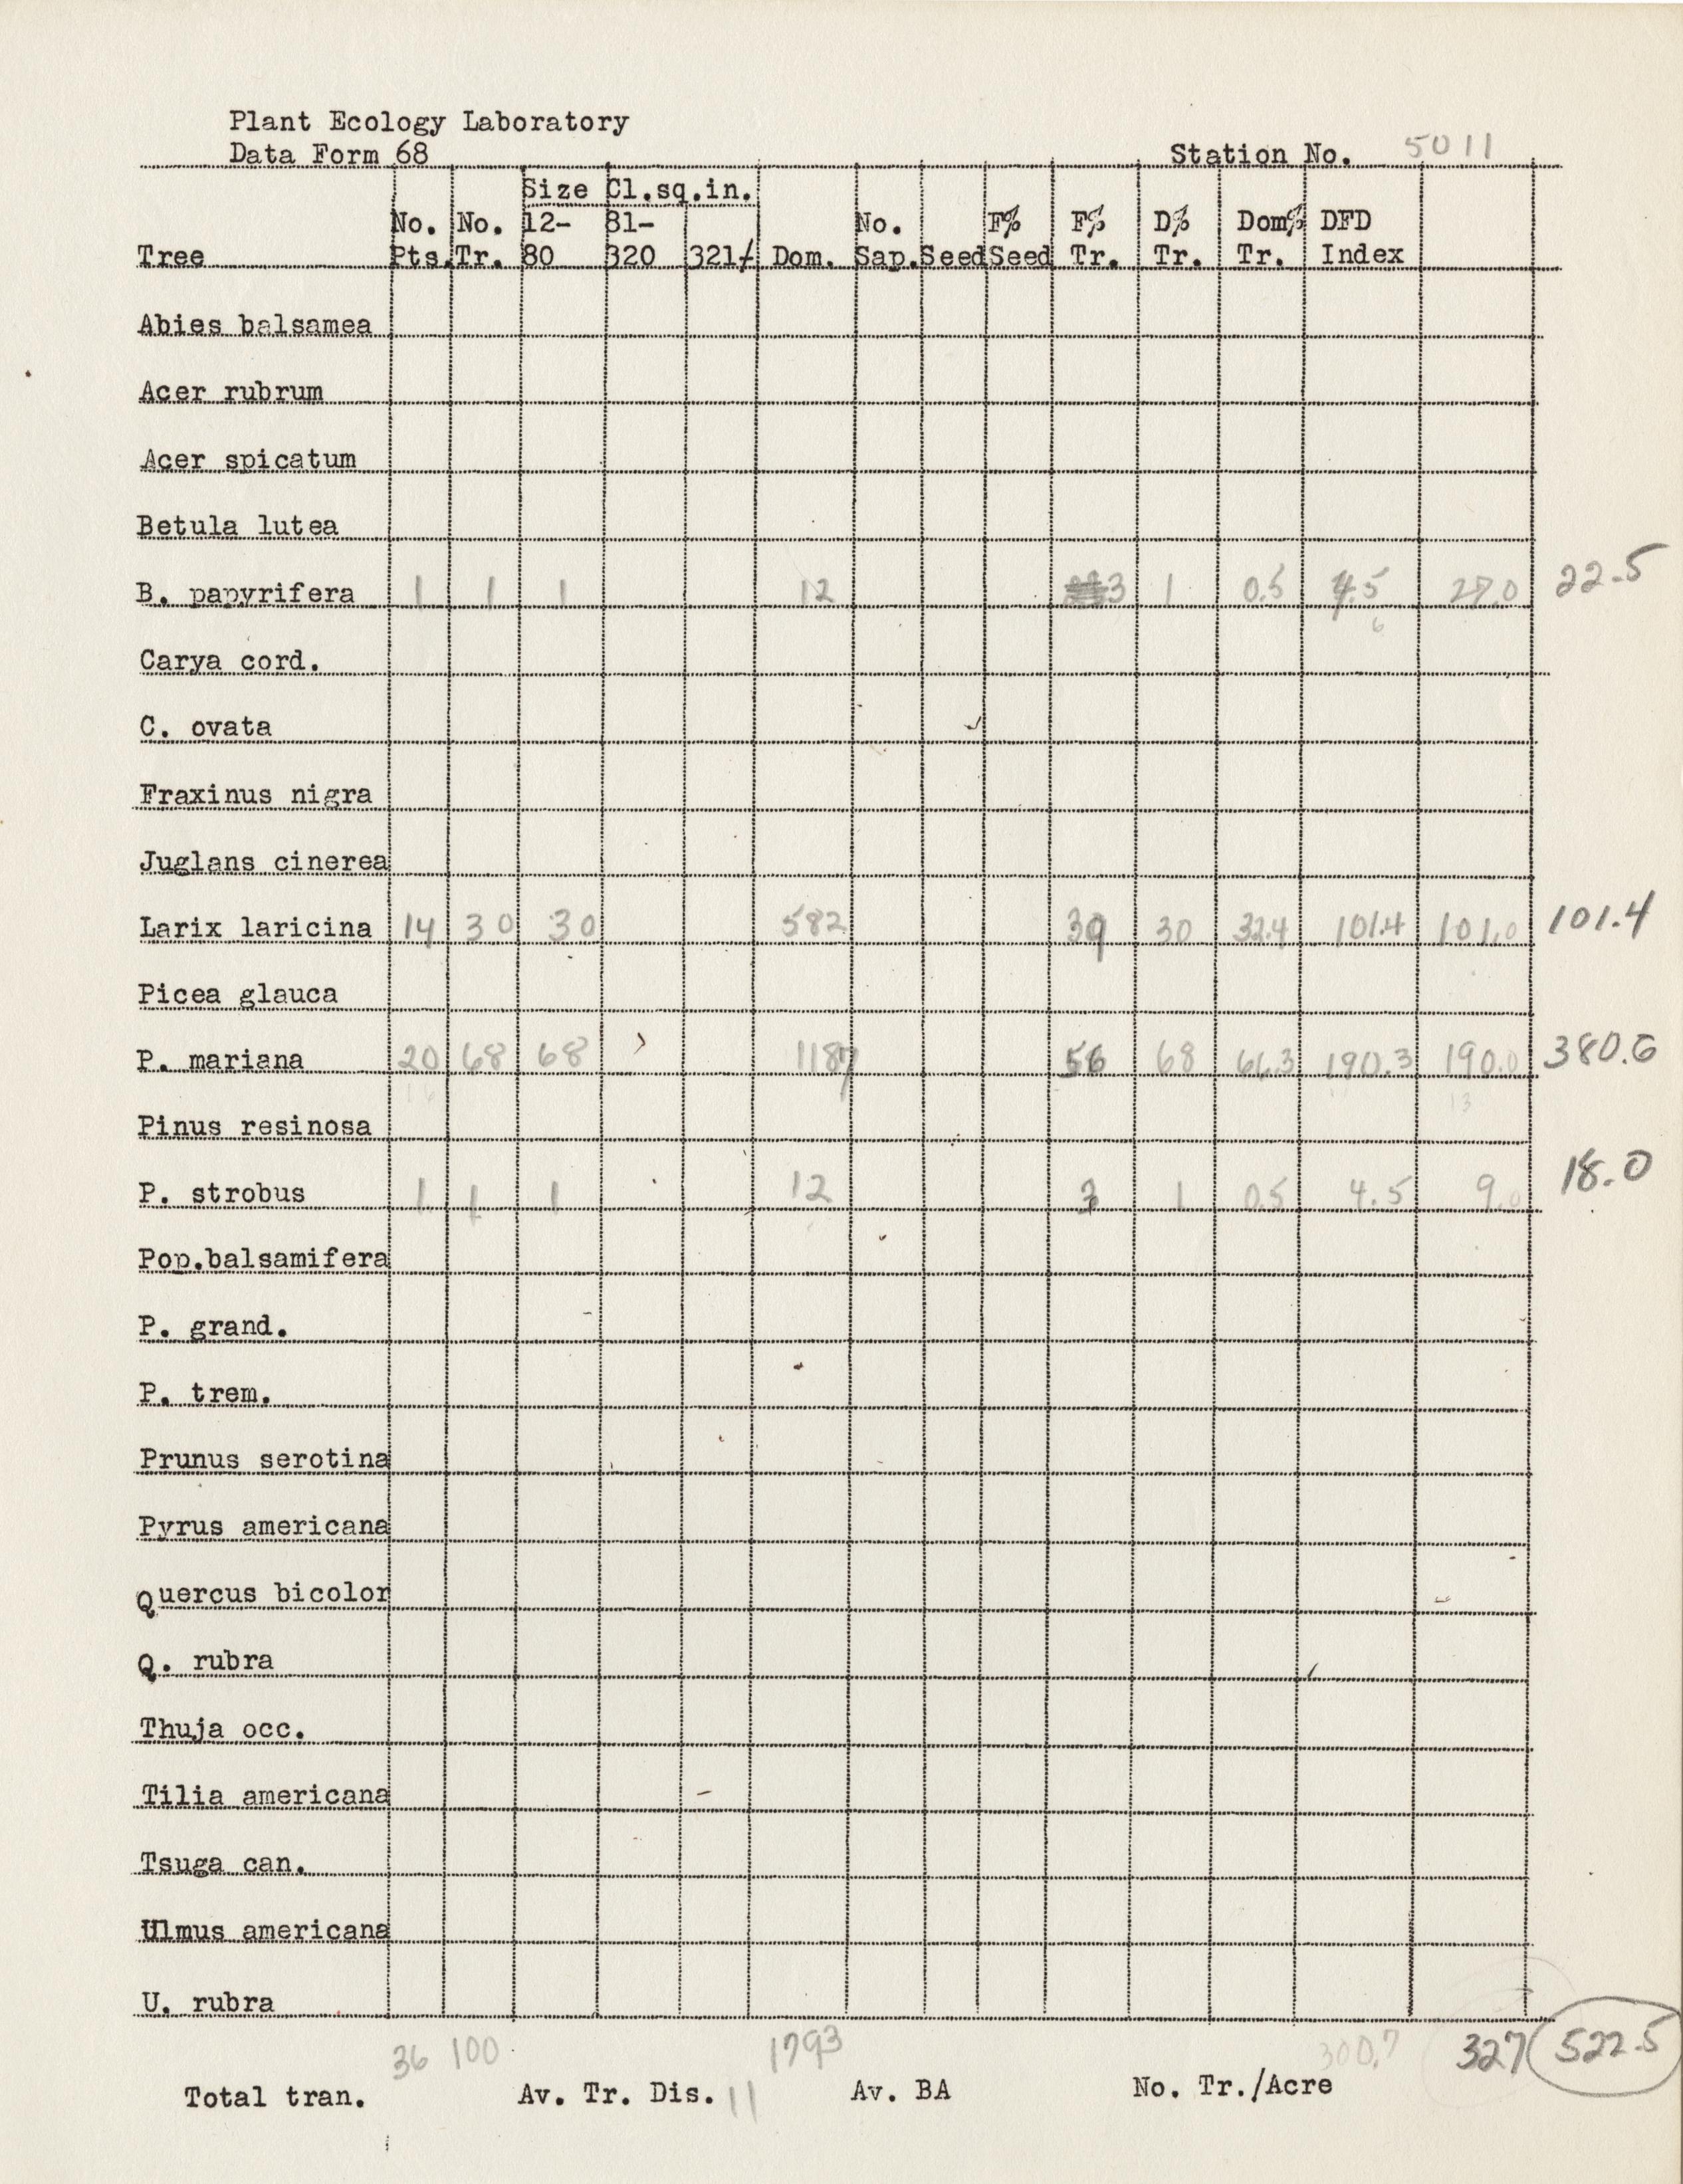 Plant Ecology Laboratory
Data Form 68 Station No. 5011
Size Cl.sq.in.
No. No. 12- 81- No. F% F% D% Dom% DFD
Tree Pts. Tr. 80 320 321/ Dom. Sap. Seed Seed Tr. Tr. Tr. Index
Abies balsamea
Acer rubrum
Acer spicatum
Betula lutea
B. papyrifera 1 1 1 12 3 1 0.5 4.5 27.0 22.5
6
Carya cord.
C. ovata
Fraxinus nigra
Juglans cinerea
Larix laricina 14 30 30 582 39 30 32.4 101.4 101.0 101.4
Picea glauca
P. mariana 20 68 68 1187 56 68 66.3 190.3 190.0 380.6
13
Pinus resinosa
P. strobus 1 1 1 12 3 1 0.5 4.5 9.0 18.0
Pop.balsamifera
P. grand.
P. trem.
Prunus serotina
Pyrus americana
Quercus bicolor
Q. rubra
Thuja occ.
Tilia americana
Tsuga can.
Ulmus americana
U. rubra
36 100 1793 300.7 327 522.5
Total tran. Av. Tr. Dis. 11 Av. BA No. Tr./Acre